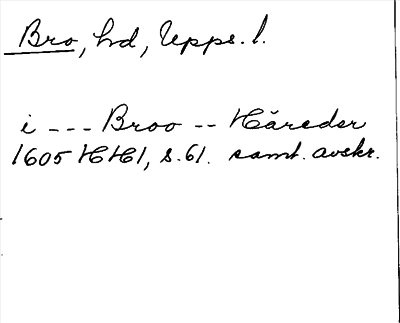 Bro, hd, Upps. l.
i --- Broo -- Häreder
1605 HH1, s. 61. samt. avskr.